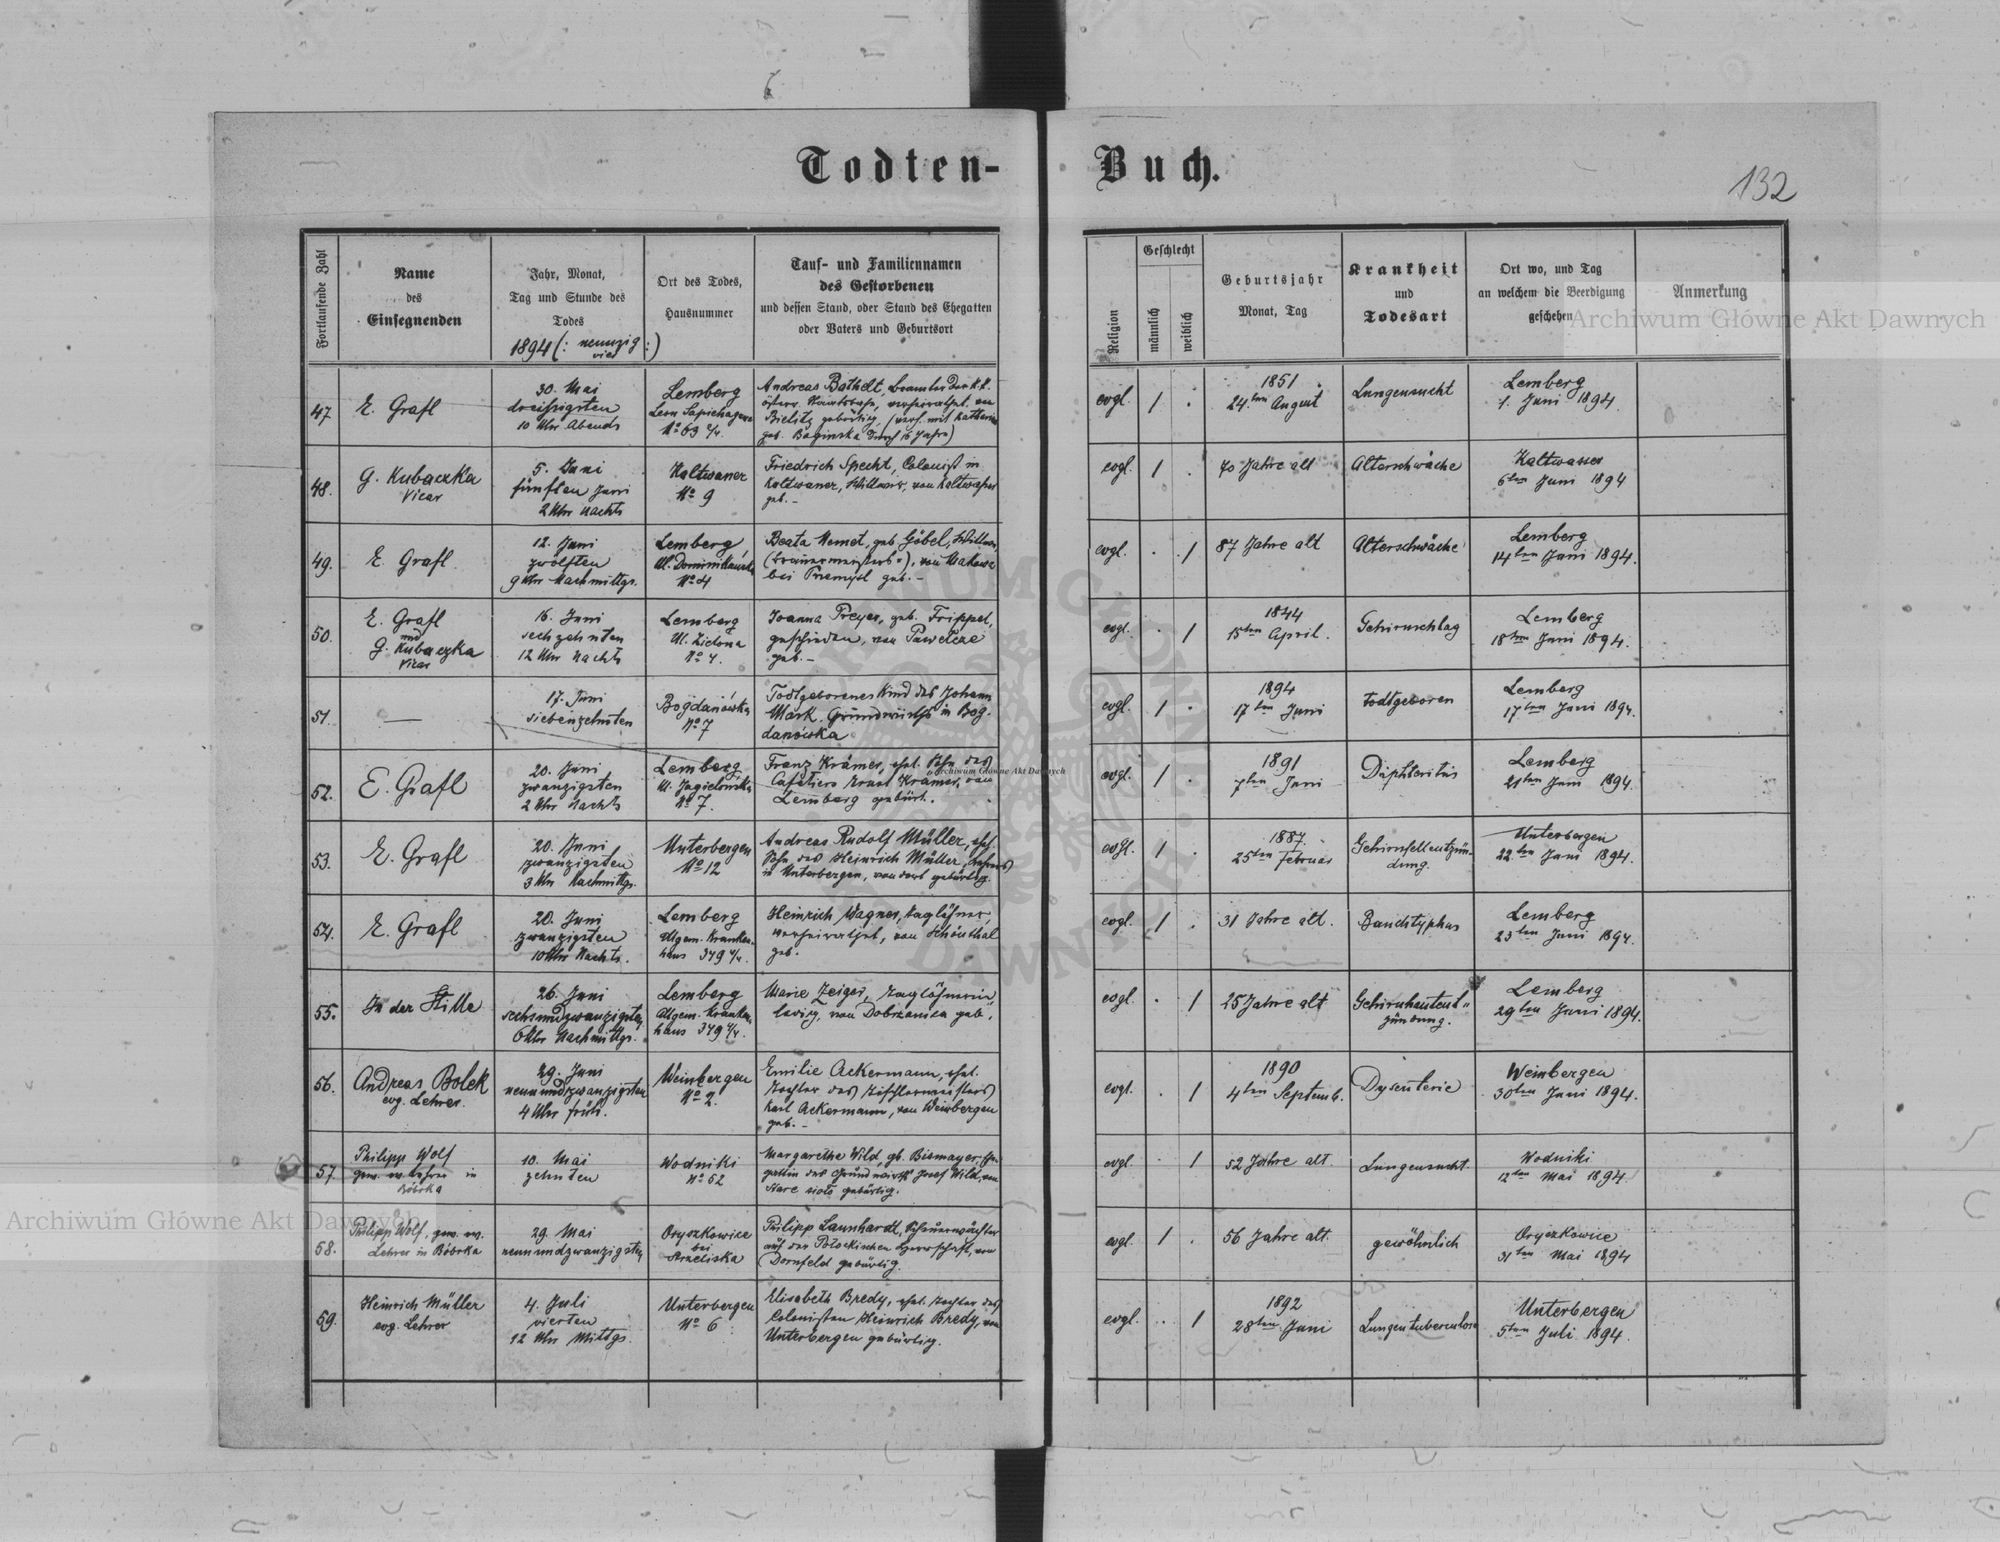 Todten-Buch.
132
Fortlaufende Zahl
Name
des
Einsegnenden
Jahr, Monat,
Tag und Stunde des
Todes
1894 (: neunzig vier :)
Ort des Todes,
Hausnummer
Tauf- und Familiennamen
des Gestorbenen
und dessen Stand, oder Stand des Ehegatten
oder Vaters und Geburtsort
Religion
Geschlecht
männlich
weiblich
Geburtsjahr
Monat, Tag
Krankheit
und
Todesart
Ort wo, und Tag
an welchem die Beerdigung
geschehen
Anmerkung
47
E. Grafl
30. Mai
dreißigsten
10 Uhr Abends
Lemberg
Leon Sapiehagasse
No 63 2/4.
Andreas Bathelt, Beamter der k.k.
österr. Staatsbahn, verheirathet, von
Bielitz gebürtig, (verh. mit Katharina
geb. Baginska durch 16 Jahre)
evgl.
1
1851.
24.ten August
Lungensucht
Lemberg
1. Juni 1894.
48.
G. Kubaczka
Vicar
5. Juni
fünften Juni
2 Uhr Nachts
Kaltwasser
No 9
Friedrich Specht, Colonist in
Kaltwasser, Wittwer, von Kaltwasser
geb.-
evgl.
1
70 Jahre alt
Altersschwäche
Kaltwasser
6ten Juni 1894
49.
E. Grafl
12. Juni
zwölften
9 Uhr Nachmittgs.
Lemberg
Ul. Dominikańska
No 4
Beata Nemet, geb. Göbel, Wittwe,
bei Przemysl geb.-
evgl.
1
87 Jahre alt
Altersschwäche
Lemberg
14ten Juni 1894.
50.
E. Grafl
und
G. Kubaczka
Vicar
16. Juni
sechzehnten
12 Uhr Nachts
Lemberg
Ul. Zielona
No 4.
Joanna Preyer, geb. Frippel,
geschieden, von Pawelcze
geb.-
evgl.
1
1844
15ten April.
Gehirnschlag
Lemberg
18ten Juni 1894.
51.
—
17. Juni
siebenzehnten
Bogdanówka
No 7
Todtgeborenes Kind des Johann
Mark, Grundwirths in Bog-
danówka
evgl.
1
1894
17ten Juni
todtgeboren
Lemberg
17ten Juni 1894.
52.
E. Grafl
20. Juni
zwanzigsten
2 Uhr Nachts
Lemberg
Ul. Jagielońska
No 7.
Franz Krämer, ehel. Sohn des
Cafetiers Ernst Krämer, von
Lemberg gebürt.
evgl.
1
1891
7ten Juni
Diphteritis
Lemberg
21ten Juni 1894.
53.
E. Grafl
20. Juni
zwanzigsten
3 Uhr Nachmittgs.
Unterbergen
No 12
Andreas Rudolf Müller, ehel.
Sohn des Heinrich Müller, Lehrers
in Unterbergen, von dort gebürtig.
evgl.
1
1887.
25ten Februar
Gehirnfellentzün-
dung.
Unterbergen
22.ten Juni 1894.
54.
E. Grafl
20. Juni
zwanzigsten
10 Uhr Nachts.
Lemberg
Allgem. Kranken-
haus 349 4/4.
Heinrich Wagner, Taglöhner,
verheirathet, von Schönthal
geb.
evgl.
1
31 Jahre alt.
Bauchtyphus
Lemberg
23ten Juni 1894.
55.
In der Stille
26. Juni
sechsundzwanzigsten
6 Uhr Nachmittgs.
Lemberg
Allgem. Kranken-
haus 349 4/4.
Marie Zeiger, Taglöhnerin
ledig, von Dobrzanica geb.
evgl.
1
25 Jahre alt
Gehirnhautent-
zündung.
Lemberg
29ten Juni 1894.
56.
Andreas Bolek
evg. Lehrer.
29. Juni
neunundzwanzigsten
4 Uhr früh.
Weinbergen
No 2.
Emilie Ackermann, ehel.
Tochter des Tischlermeisters
Karl Ackermann, von Weinbergen
geb.-
evgl.
1
1890
4ten Septemb.
Dysenterie
Weinbergen
30ten Juni 1894.
57.
Philipp Wolf
gew. ev. Lehrer in
Bóbrka
10. Mai
zehnten
Wodniki
No 52
Margarethe Wild, gb. Bismayer, Ehe-
gattin des Grundwirth Josef Wild, von
Stare sioło gebürtig.
evgl.
1
52 Jahre alt.
Lungensucht.
Wodniki
12ten Mai 1894.
58.
Philipp Wolf, gew. ev.
Lehrer in Bóbrka
29. Mai
neunundzwanzigsten
Oryszkowice
bei
Strzeliska
Philipp Launhardt, Scheuerwächter
auf der Potockischen Herrschaft, von
Dornfeld gebürtig.
evgl.
1
56 Jahre alt.
gewöhnlich
Oryszkowice
31ten Mai 1894
59.
Heinrich Müller
evg. Lehrer
4. Juli
vierten
12 Uhr Mittgs.
Unterbergen
No 6
Elisabeth Bredy, ehel. Tochter des
Colonisten Heinrich Bredy, von
Unterbergen gebürtig.
evgl.
1
1892
28ten Juni
Lungentuberculose
Unterbergen
5ten Juli 1894.
Archiwum Główne Akt Dawnych
Archiwum Główne Akt Dawnych
Archiwum Główne Akt Dawnych